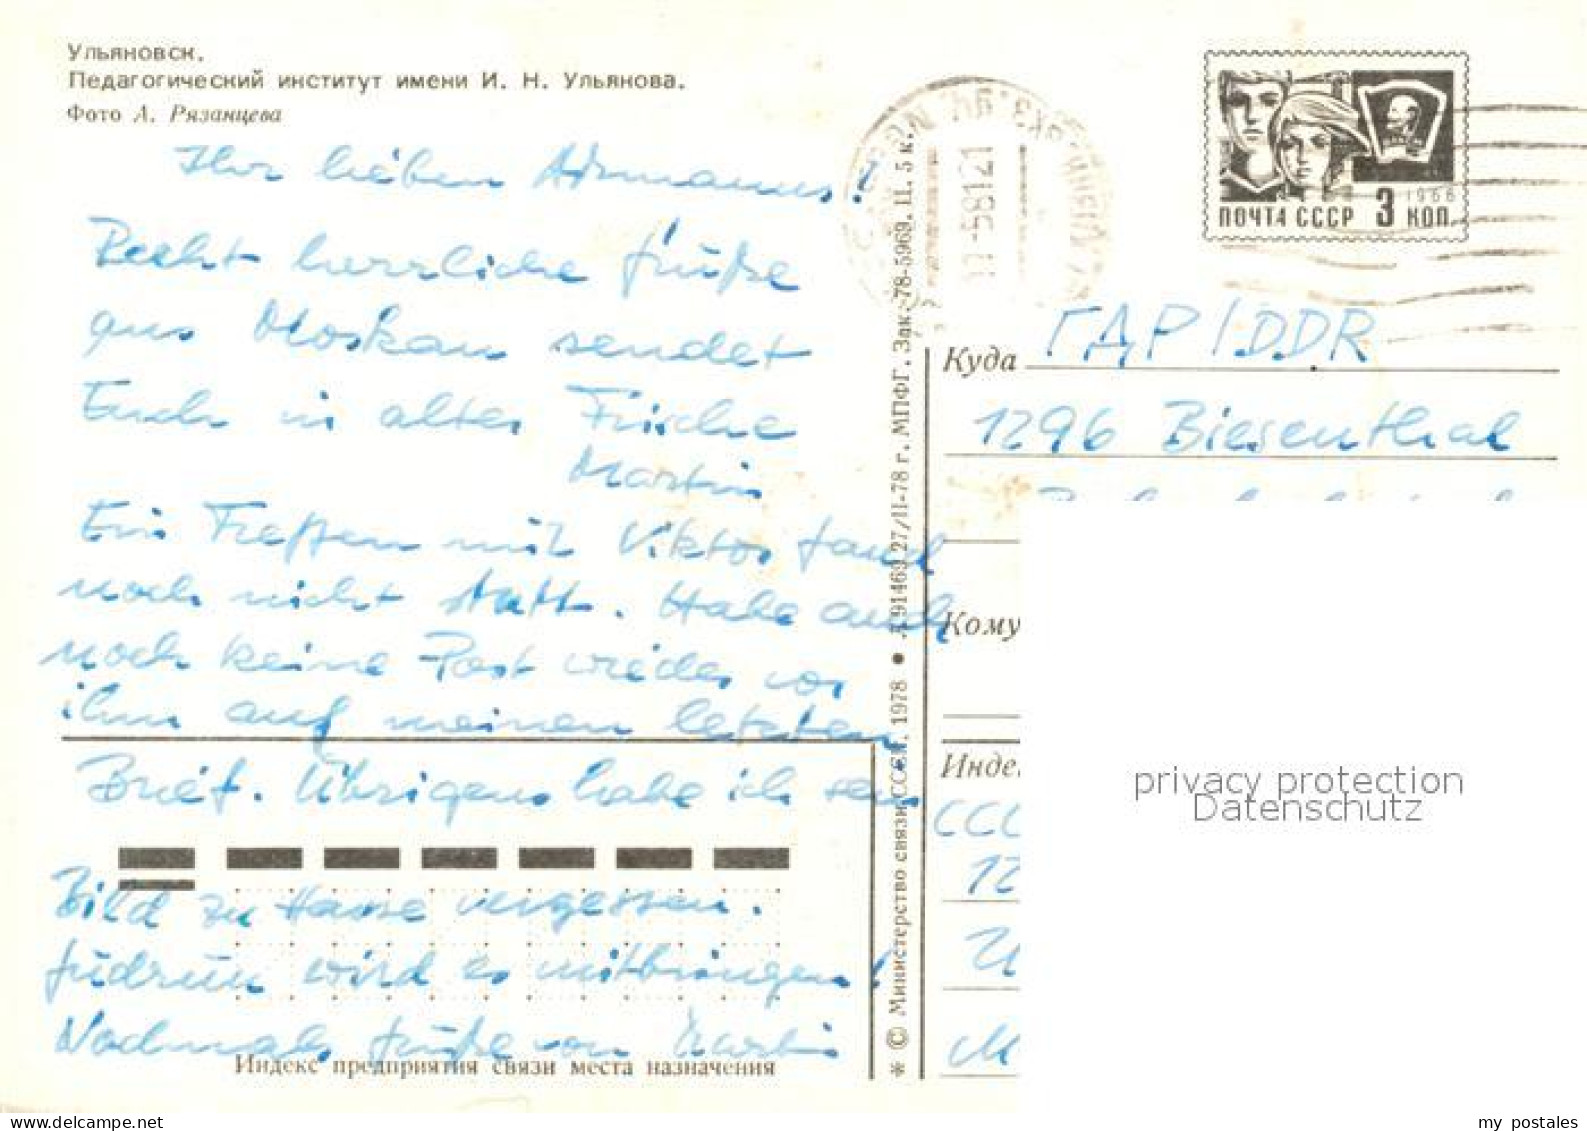 Ульяновск.
Педагогический институт имени И. Н. Ульянова.
Фото А. Рязанцева
Ihr lieben
Recht herzliche Grüße
aus Moskau sendet
Euch in alter Frische
Martin
Ein Treffen mit Viktor fand
noch nicht statt. Habe auch
noch keine Post wieder von
ihm auf meinen letzten
Brief. Übrigens habe ich sein
Bild zu Hause vergessen.
Gudrun wird es mitbringen!
Nochmals Grüße von Martin
Индекс предприятия связи места назначения
* © Министерство связи СССР. 1978 • А 91469 27/II-78 г. МПФГ. Зак. 78-5969. II. 5 к.
1966
ПОЧТА СССР 3 КОП.
Куда ГДР / DDR
1296 Biesenthal
Кому
Инде
ССС
12
М
privacy protection
Datenschutz
my postales